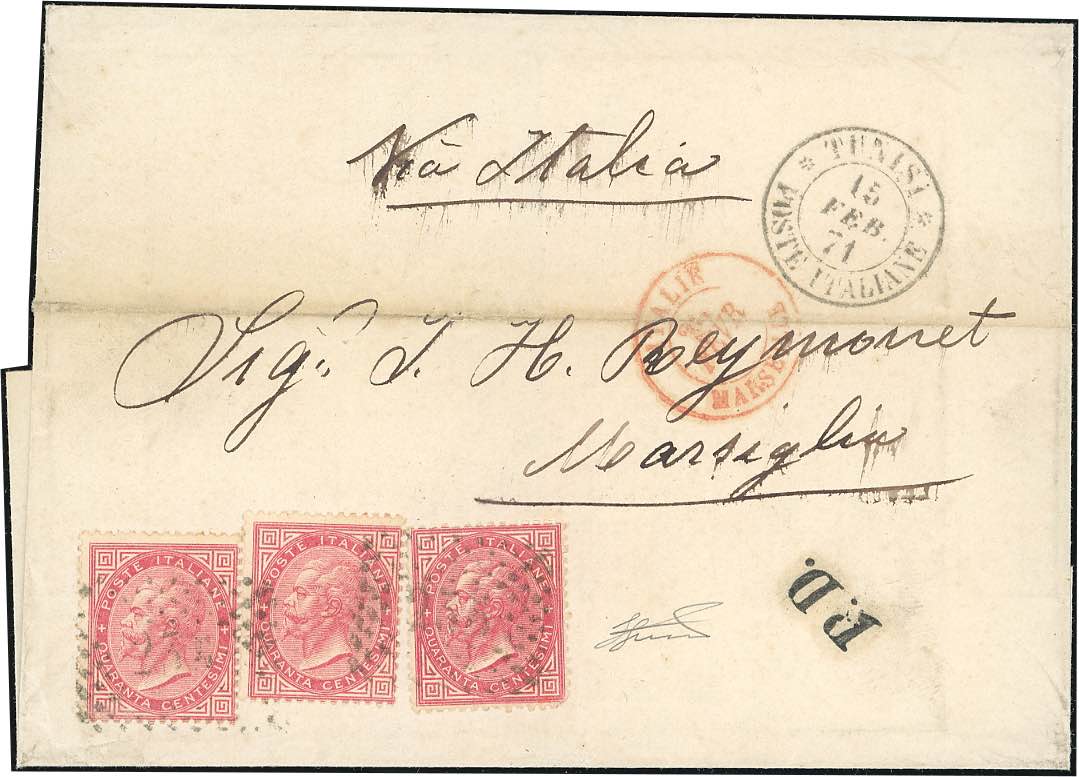 Via Italia
* TUNISI *
POSTE ITALIANE
15
FEB.
71
ITALIE
MARSEILLE
Sigr. J. H. Reymonet
Marsiglia
P.D.
+ POSTE ITALIANE +
QUARANTA CENTESIMI
+ POSTE ITALIANE +
QUARANTA CENTESIMI
+ POSTE ITALIANE +
QUARANTA CENTESIMI